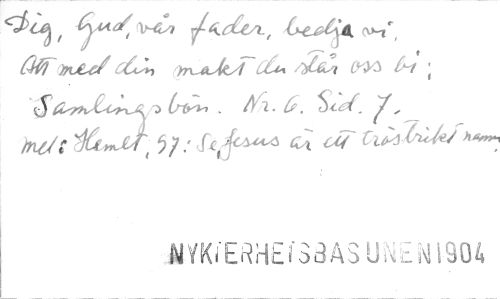 Dig, Gud, vår fader, bedja vi,
Att med din makt du står oss bi;
Samlingsbön. Nr. 6. Sid. 7.
mel: Hemlt, 97: Se, Jesus är ett tröstrikt namn.
NYKTERHETSBASUNEN 1904